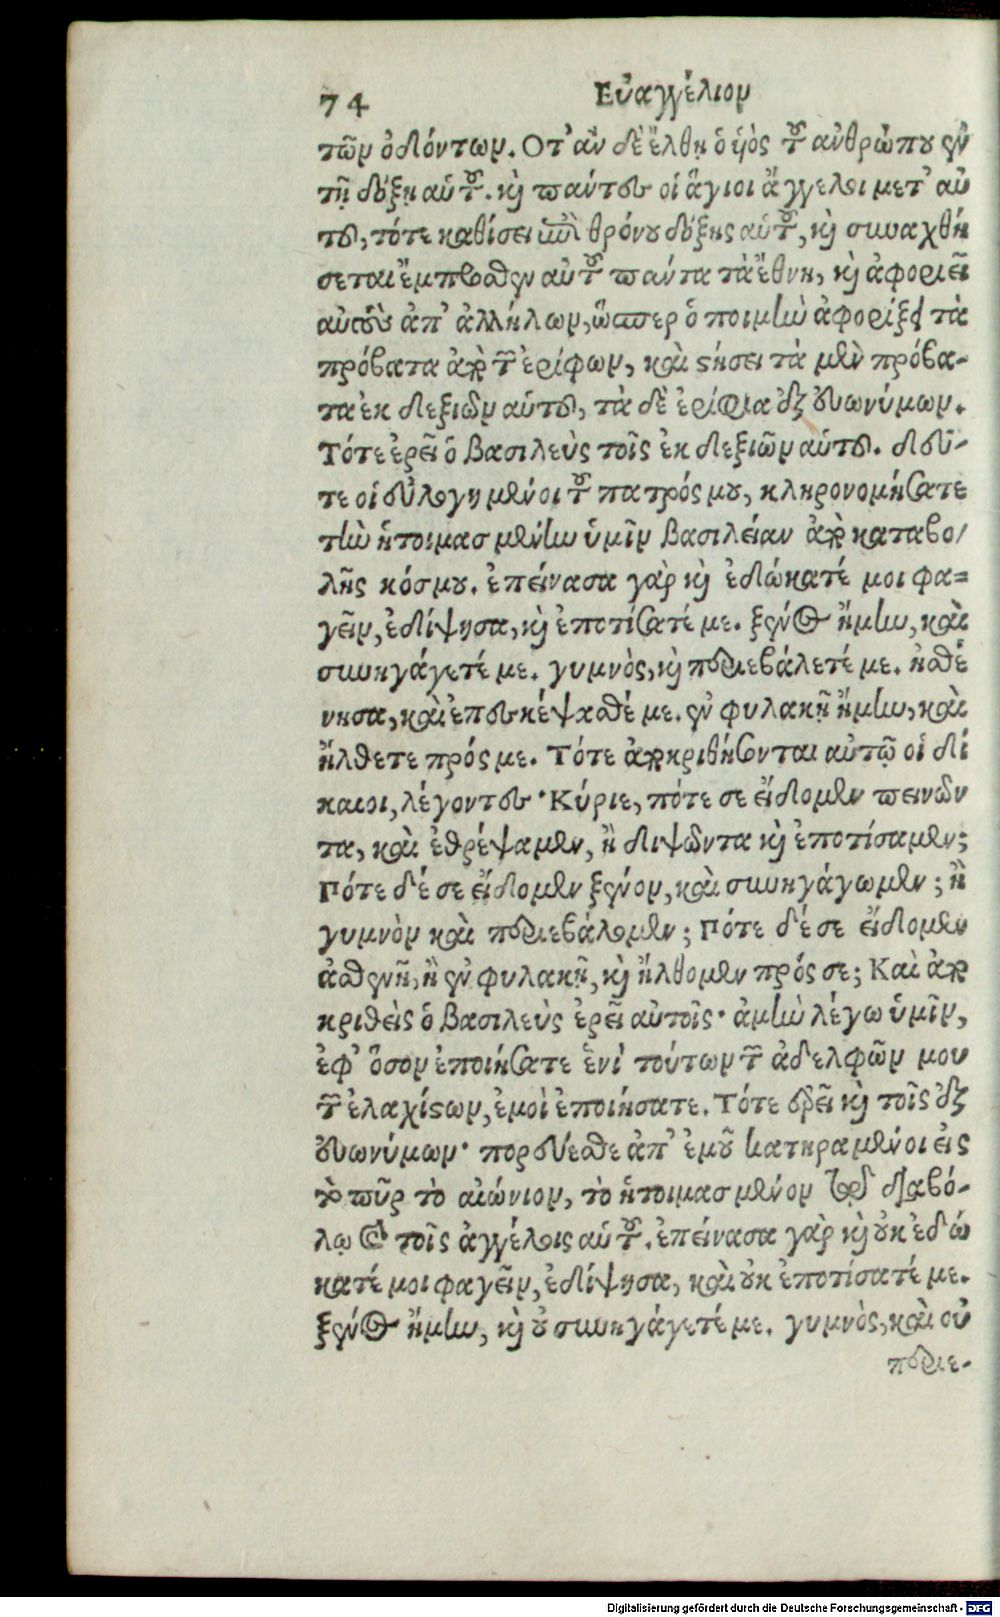 74 Εὐαγγέλιον
τῶν ὀδόντων. Ὅτ' ἂν δὲ ἔλθῃ ὁ υἱὸς τοῦ ἀνθρώπου ἐν
τῇ δόξῃ αὑτοῦ. καὶ πάντες οἱ ἅγιοι ἄγγελοι μετ' αὐ
τοῦ, τότε καθίσει ἐπὶ θρόνου δόξης αὑτοῦ, καὶ συναχθή
σεται ἔμπροσθεν αὐτοῦ πάντα τὰ ἔθνη, καὶ ἀφοριεῖ
αὐτοὺς ἀπ' ἀλλήλων, ὥσπερ ὁ ποιμὴν ἀφορίζει τὰ
πρόβατα ἀπὸ τῶν ἐρίφων, καὶ στήσει τὰ μὲν πρόβα-
τα ἐκ δεξιῶν αὑτοῦ, τὰ δὲ ἐρίφια ἐξ εὐωνύμων.
Τότε ἐρεῖ ὁ βασιλεὺς τοῖς ἐκ δεξιῶν αὑτοῦ. δεῦ-
τε οἱ εὐλογημένοι τοῦ πατρός μου, κληρονομήσατε
τὴν ἡτοιμασμένην ὑμῖν βασιλείαν ἀπὸ καταβο/
λῆς κόσμου. ἐπείνασα γὰρ καὶ ἐδώκατέ μοι φα=
γεῖν, ἐδίψησα, καὶ ἐποτίσατέ με. ξένος ἤμην, καὶ
συνηγάγετέ με. γυμνὸς, καὶ περιεβάλετέ με. ἠσθέ
νησα, καὶ ἐπεσκέψασθέ με. ἐν φυλακῇ ἤμην, καὶ
ἤλθετε πρός με. Τότε ἀποκριθήσονται αὐτῷ οἱ δί
καιοι, λέγοντες· Κύριε, πότε σε εἴδομεν πεινῶν
τα, καὶ ἐθρέψαμεν, ἢ διψῶντα καὶ ἐποτίσαμεν;
Πότε δέ σε εἴδομεν ξένον, καὶ συνηγάγωμεν; ἢ
γυμνὸν καὶ περιεβάλομεν; Πότε δέ σε εἴδομεν
ἀσθενῆ, ἢ ἐν φυλακῇ, καὶ ἤλθομεν πρός σε; Καὶ ἀπο
κριθεὶς ὁ βασιλεὺς ἐρεῖ αὐτοῖς· ἀμὴν λέγω ὑμῖν,
ἐφ' ὅσον ἐποιήσατε ἑνὶ τούτων τῶν ἀδελφῶν μου
τῶν ἐλαχίστων, ἐμοὶ ἐποιήσατε. Τότε ἐρεῖ καὶ τοῖς ἐξ
εὐωνύμων· πορεύεσθε ἀπ' ἐμοῦ κατηραμένοι εἰς
τὸ πῦρ τὸ αἰώνιον, τὸ ἡτοιμασμένον τῷ διαβό-
λῳ καὶ τοῖς ἀγγέλοις αὑτοῦ. ἐπείνασα γὰρ καὶ οὐκ ἐδώ
κατέ μοι φαγεῖν, ἐδίψησα, καὶ οὐκ ἐποτίσατέ με.
ξένος ἤμην, καὶ οὐ συνηγάγετέ με. γυμνὸς, καὶ οὐ
περιε-
Digitalisierung gefördert durch die Deutsche Forschungsgemeinschaft - DFG